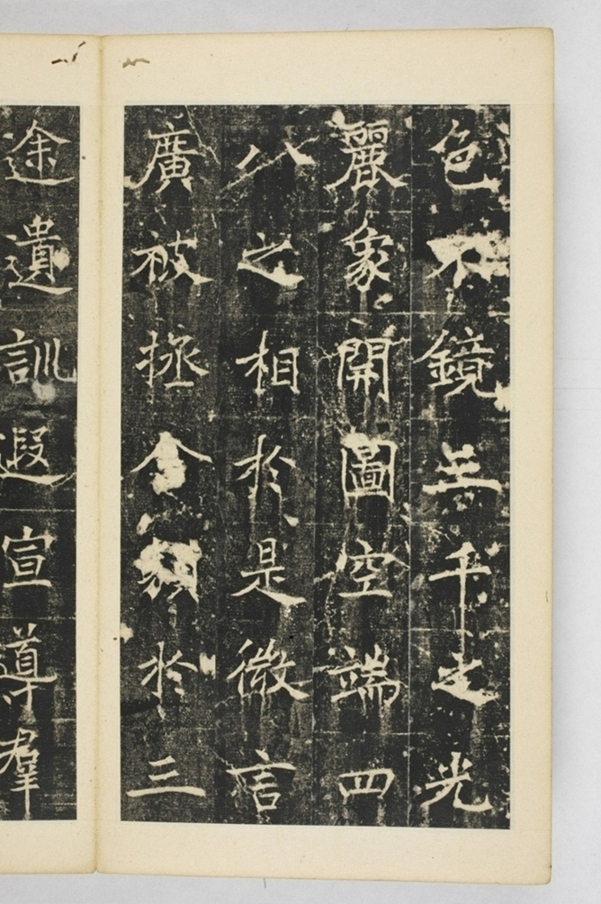 色不鏡三千之光
麗象開圖空端四
八之相於是微言
廣被拯含類於三
途遺訓遐宣導羣